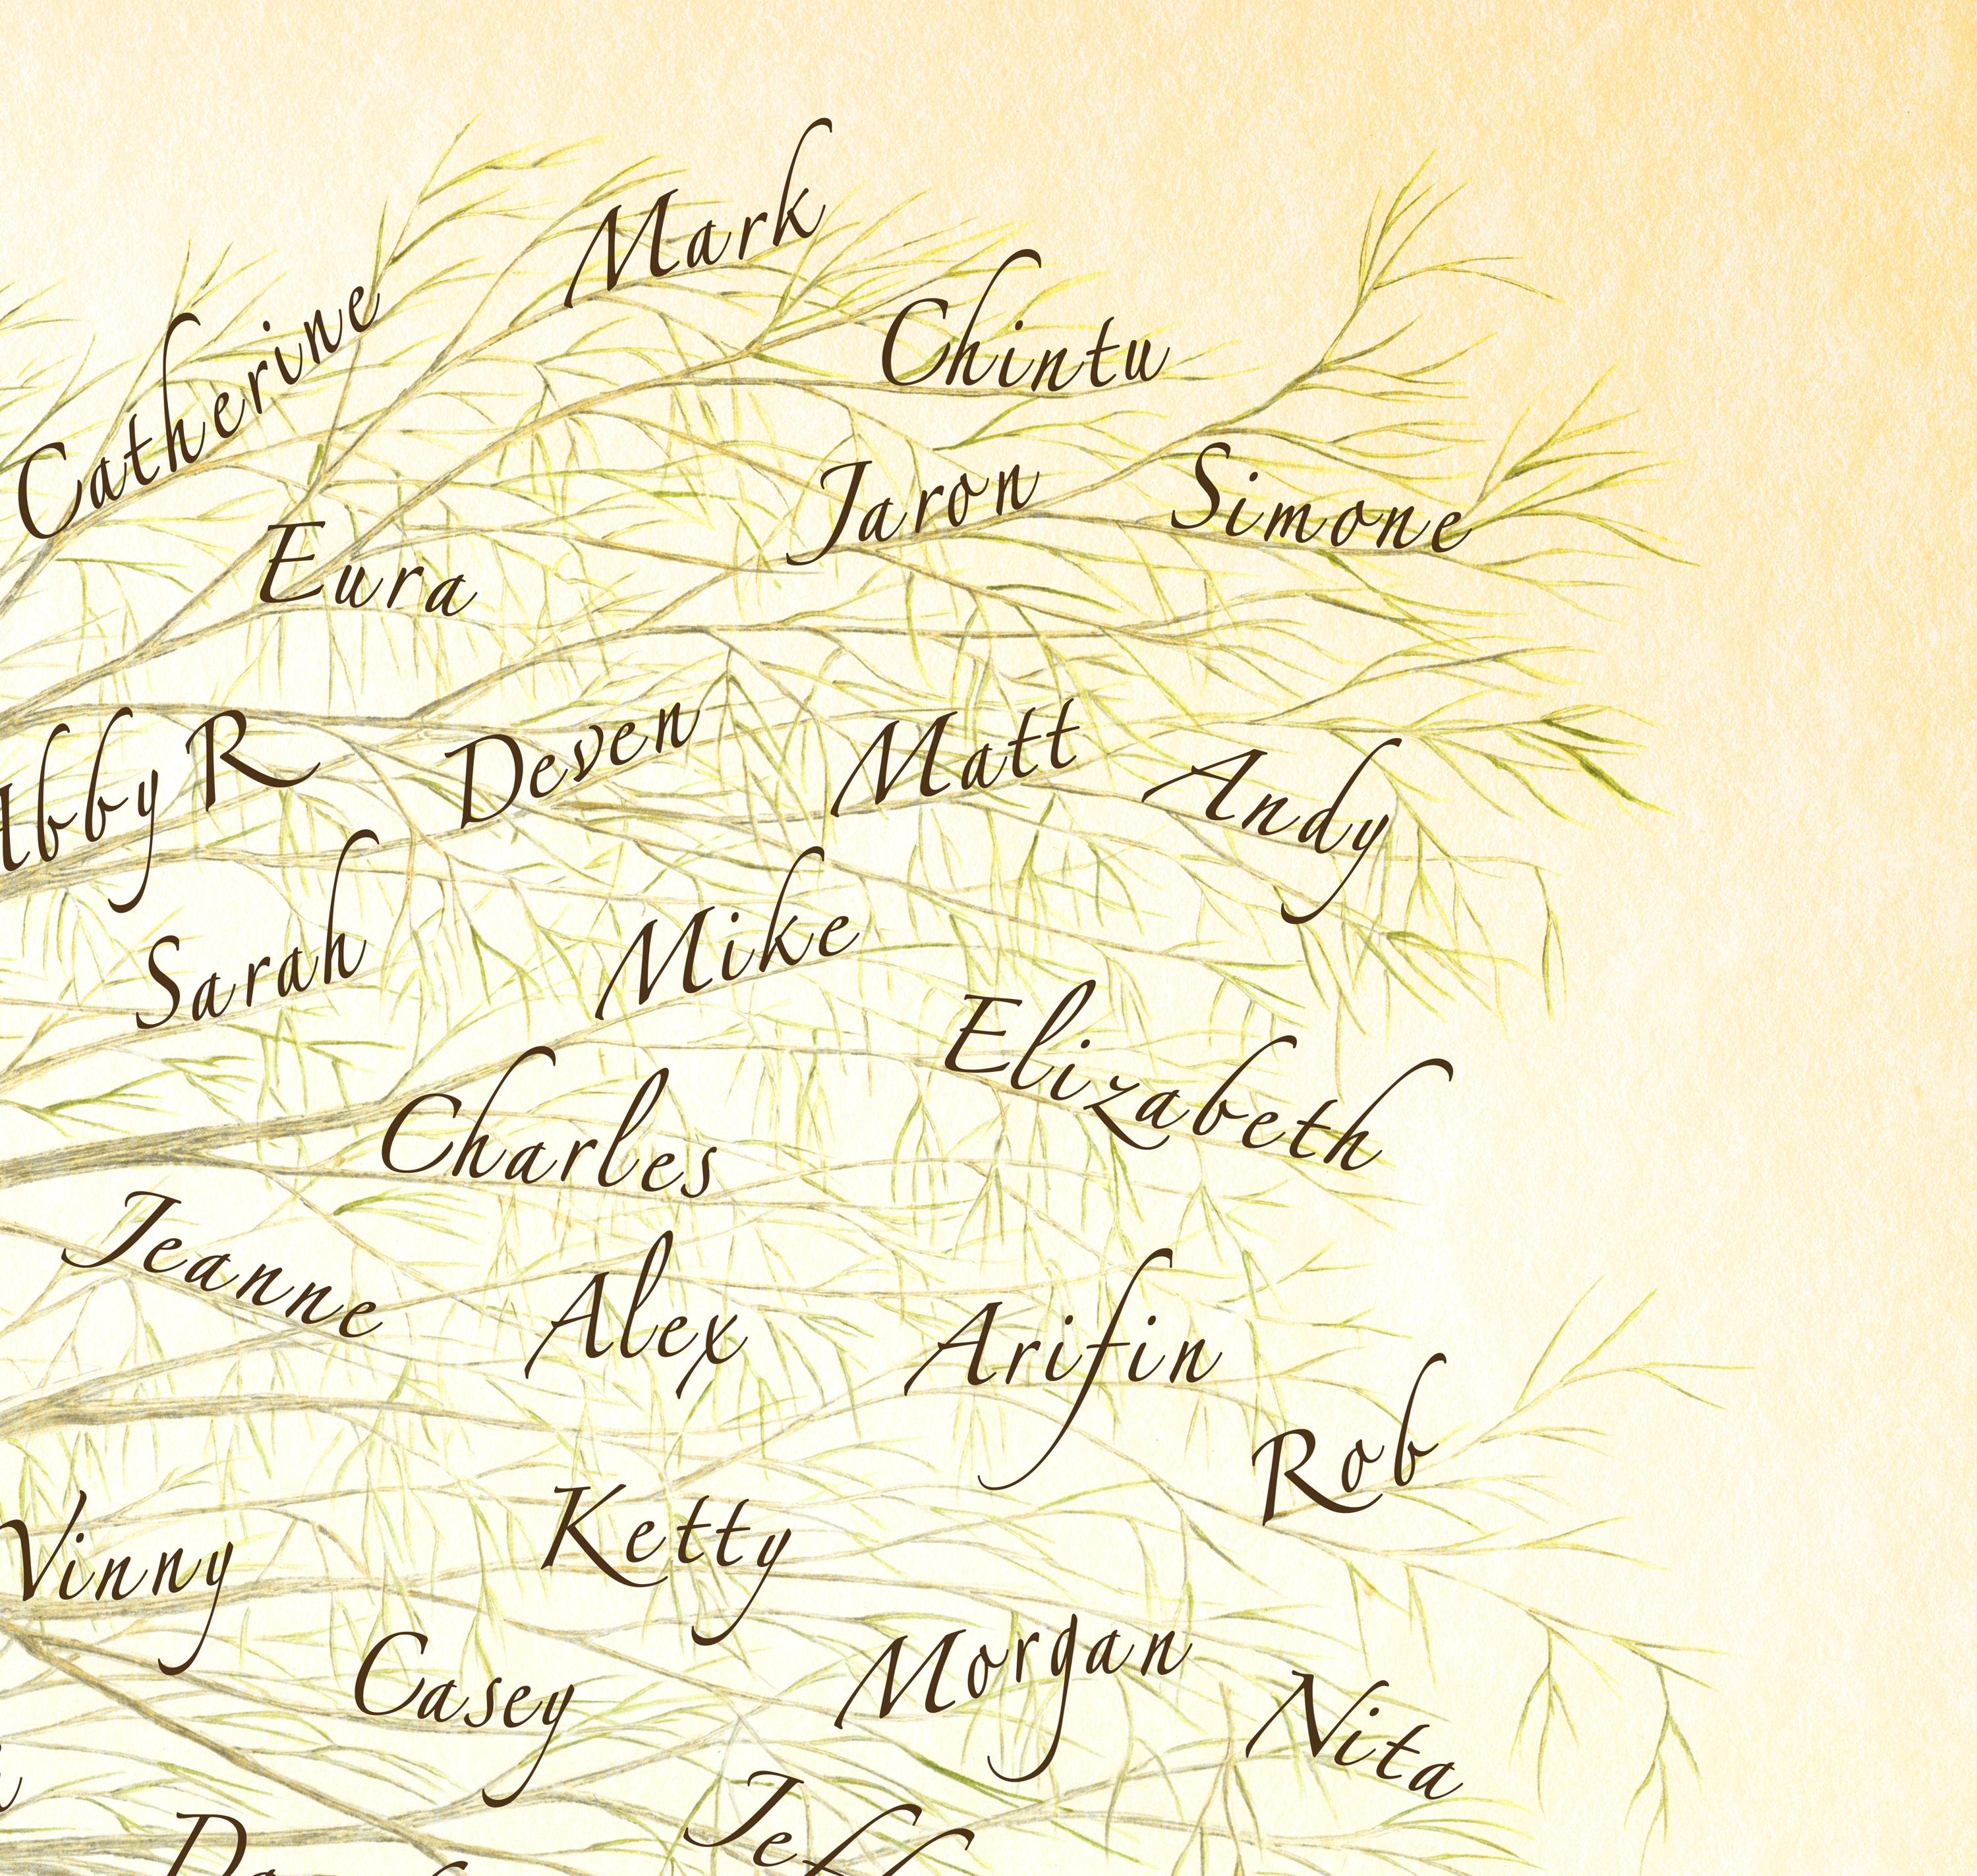 Mark
Catherine
Chintu
Jaron
Simone
Eura
Abby R
Deven
Matt
Andy
Sarah
Mike
Elizabeth
Charles
Jeanne
Alex
Arifin
Rob
Vinny
Ketty
Casey
Morgan
Nita